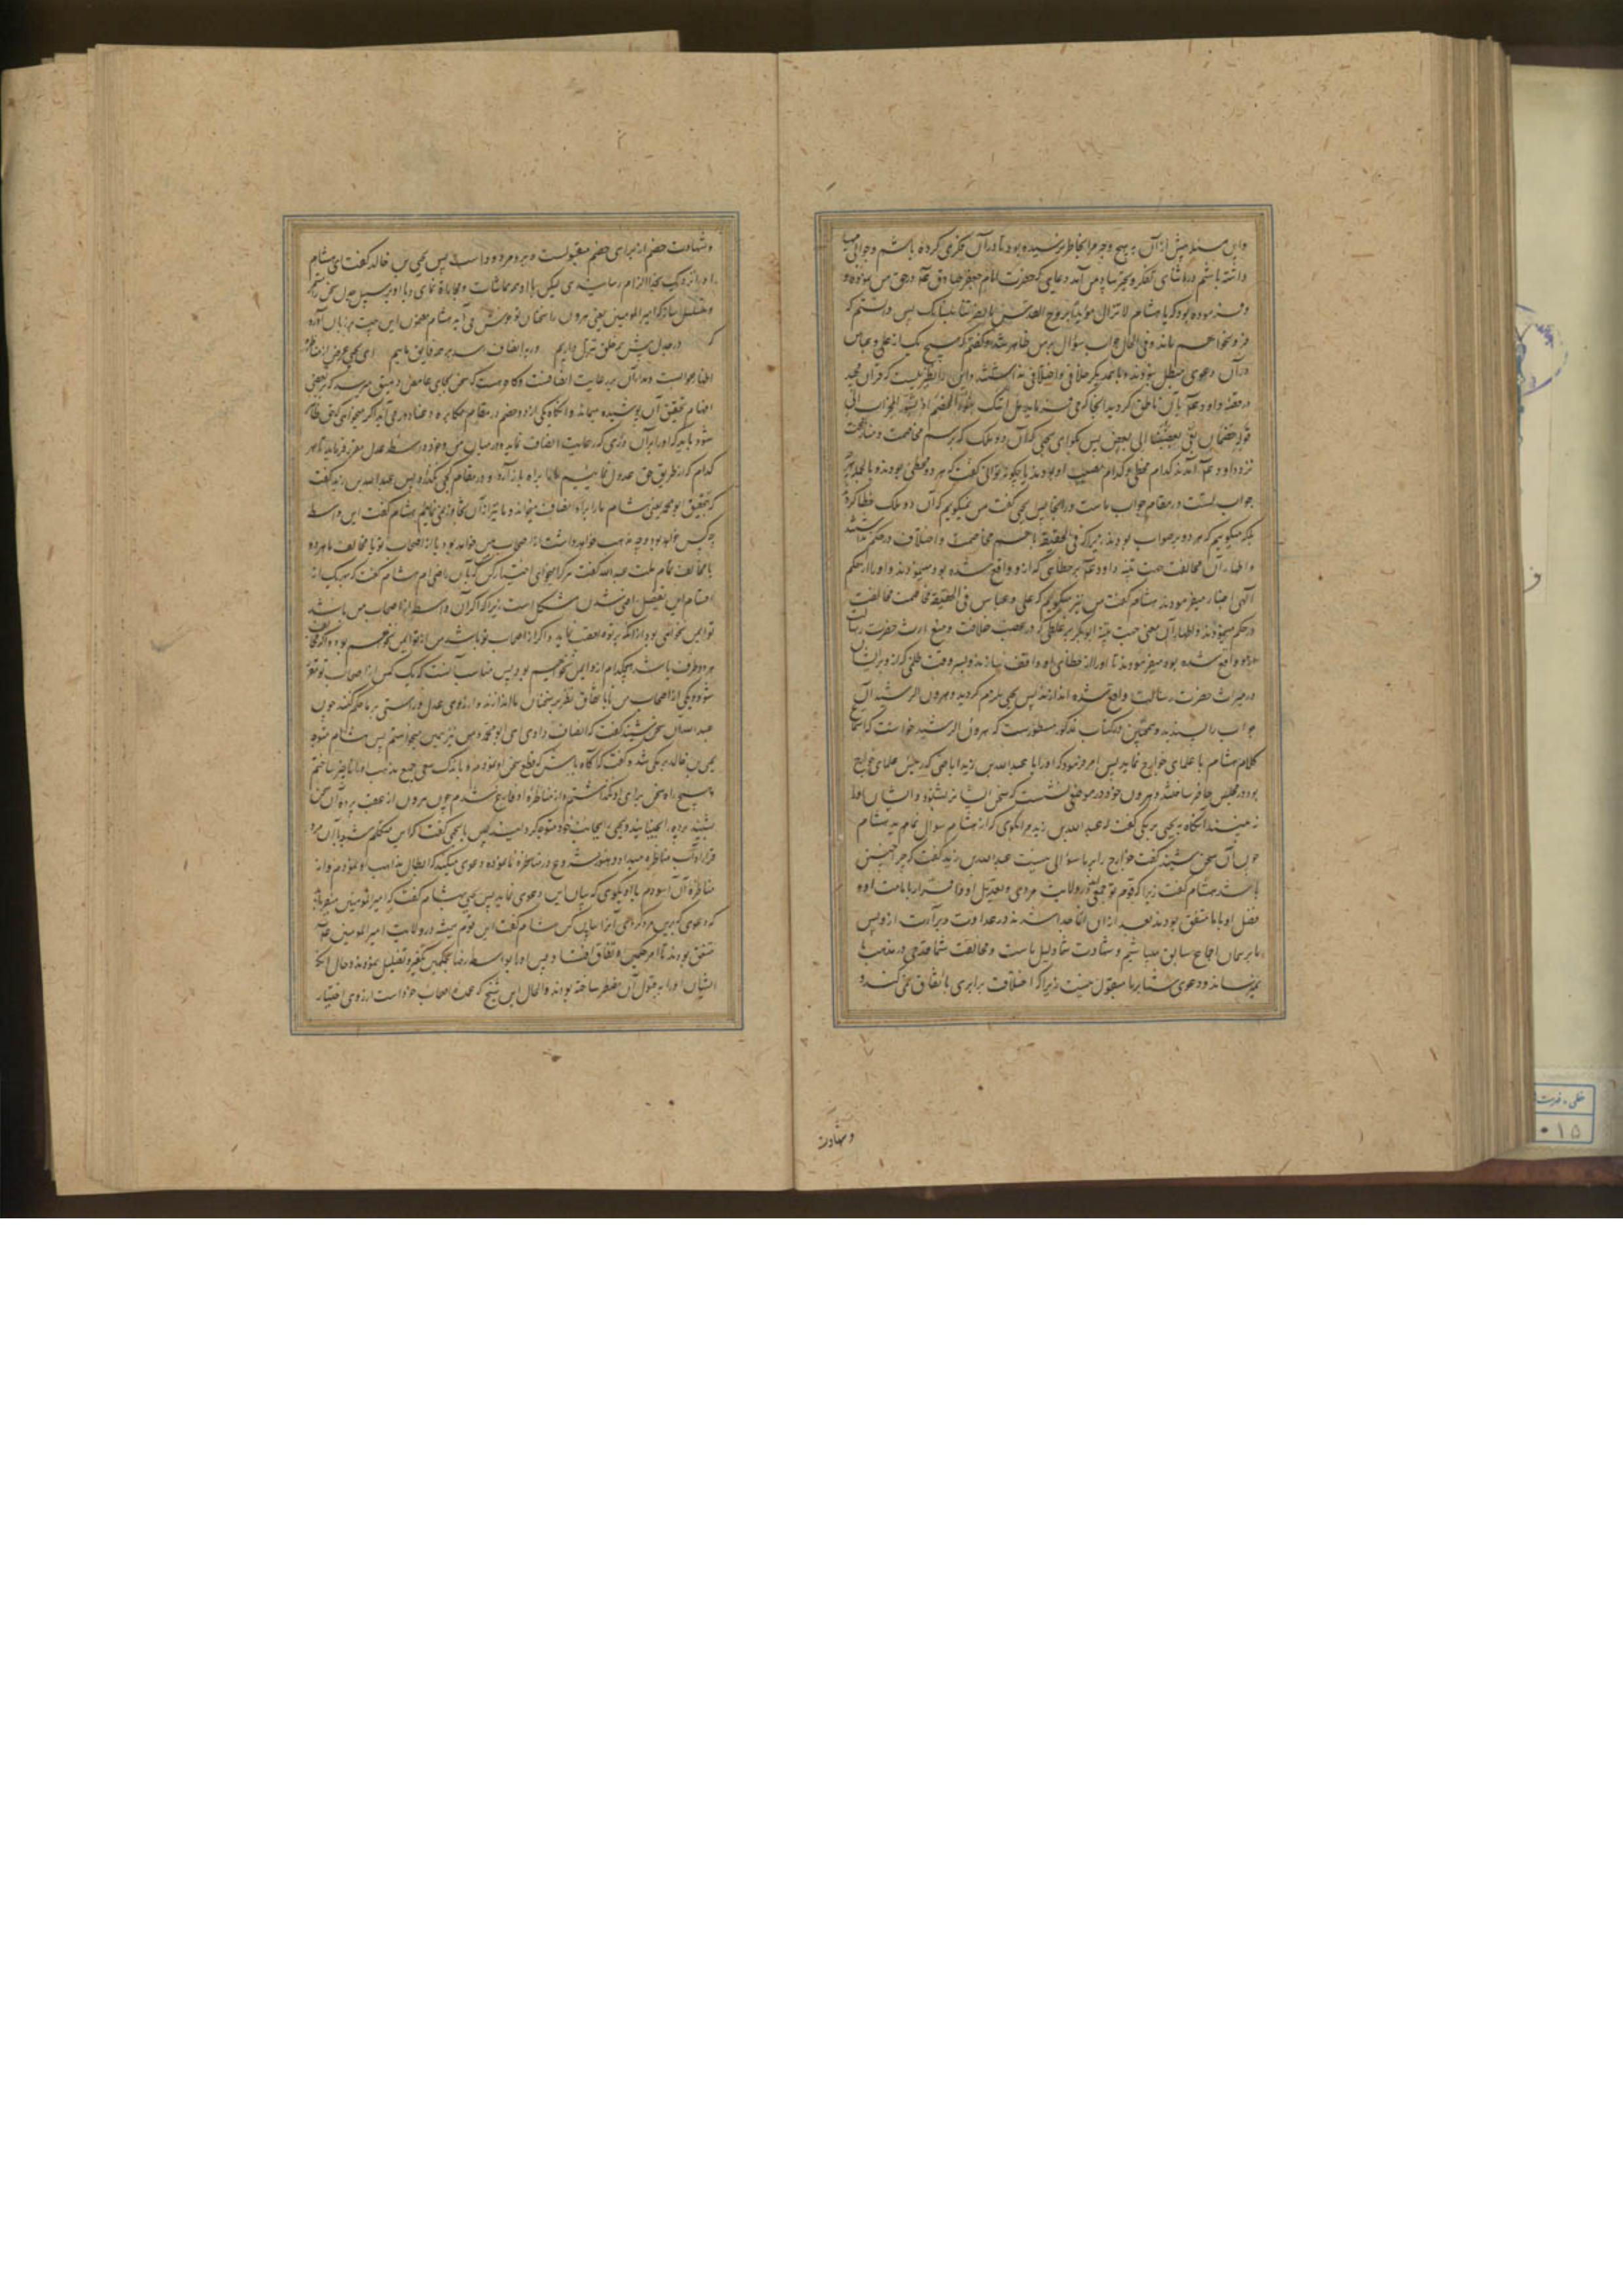 و این مسئله پیش از آن به هیچ وجه مرا بخاطر نرسیده بود تا در آن فکری کرده باشم و جوابی مهیا
داشته باشم در اثنای تفکر و تحیر بیاد من آمد دعایی که حضرت امام جعفر صادق عم در حق من نموده و
فرموده بود که یا هشام لا تزال مؤیدا بروح القدس ما نصرتنا بلسانک پس دانستم که
فرو نخواهم ماند و فی الحال جواب سؤال بر من ظاهر شد و گفتم که هیچ یک از علی و عباس
در آن دعوی مبطل نبودند و با همدیگر خلافی و اختلافی نداشتند و این را نظیریست که قرآن مجید
در قصه داود عم بآن ناطق گردیده انجا که می فرماید هل اتیک نبؤا الخصم اذ تسوروا المحراب الی
قوله خصمان بغی بعضنا الی بعض پس بگو ای یحیی که آن دو ملک که برسم مخاصمت و منازعت
نزد داود عم آمدند کدام مخطی و کدام مصیب بودند یا چگونه توانی گفت که هر دو مخطی بودند و بالجمله هر
جواب تست در مقام جواب ماست در انجا پس یحیی گفت من نمیگویم که آن دو ملک خطا کرده
بلکه میگویم که هر دو بر صواب بودند زیرا که فی الحقیقه با هم مخاصمت و اختلاف در حکم نداشتند
و اظهار آن مخالفت جهت تنبیه داود عم بر خطایی که از و واقع شده بود مینمودند و او را از حکم
الهی اخبار میفرمودند هشام گفت من نیز میگویم که علی و عباس فی الحقیقه مخاصمت مخالفت
در حکم نبودند و اظهار آن معنی جهت تنبیه ابوبکر بر غلطی که در غصب خلافت و منع ارث حضرت رسالت
واقع شده بود میفرمودند تا او را از خطای او واقف سازند و بر وقت ظلمی که از و بر ایشان
در میراث حضرت رسالت واقع شده اندازند پس یحیی ملزم گردید و هرون الرشید آن
جواب را پسندید و همچنین در کتاب مذکور مسطورست که هرون الرشید خواست که استماع
کلام هشام با علمای خوارج نماید پس امر نمود که او را با عبدالله بن زید اباضی که رئیس علمای خوارج
بود در مجلس حاضر ساختند و هرون خود در موضعی نشست که سخن ایشان بشنود و ایشان او را
نه بینند آنگاه یحیی برمکی گفت عبدالله بن زید را بگوی که از هشام سوال نماید هشام
چون آن سخن شنید گفت خوارج را بر ما سؤالی نیست عبدالله بن زید گفت که چرا چنین
باشد هشام گفت زیرا که قوم تو جمعی اند در ولایت مردی و تعدیل او و اقرار بامامت او و
فضل او با ما متفق بودند بعد از آن از ما جدا شدند در عداوت و برآت از و پس
ما بر همان اجماع سابق میباشیم و شهادت شما دلیل ماست و مخالفت شما قدحی در مذهب ما
نمیرساند و دعوی شما بر ما مقبول نیست زیرا که اختلاف برابری با اتفاق نمی کند و
و شهادت
و شهادت خصم از برای خصم مقبولست و بر و مردود است پس یحیی بن خالد گفت ای هشام
او را نزدیک بحد الزام رسانیدی لیکن با او مماشات و مجاراة نمای و با او بر سبیل جدل سخن را مستمر
و متسلسل ساز که امیرالمؤمنین یعنی هرون را سخنان تو خوش می آید هشام مضمون این بیت بر زبان آورد
که در جدال پیش بر خلق تنزل داریم ور به انصاف رسد بر همه فایق ماییم ای یحیی غرض از مناظره
اظهار صوابست و مدار آن بر رعایت انصافست و گاه هست که سخن بجای غامض دقیق میرسد که بر بعضی
افهام تحقیق آن پوشیده میماند و انگاه یکی از دو خصم در مقام مکابره و عناد در می آید اگر میخواهی که حق ظاهر
شود باید که او را بر آن داری که رعایت انصاف نماید و در میان من و خود واسطه عدل مقرر فرماید تا هر
کدام که از طریق حق عدول نماییم ما را براه باز آرد و در مقام کجی نگذارد پس عبدالله بن زید گفت
که بتحقیق ابو محمد یعنی هشام ما را براه انصاف میخواند و ما نیز از آن تجاوز نمی نماییم هشام گفت این واسطه
چه کس خواهد بود و چه مذهب خواهد داشت از اصحاب من خواهد بود یا از اصحاب تو یا مخالف ما هر دو
یا مخالف تمام ملت عبدالله گفت هر که را میخواهی اختیار کن که بآن راضی ام هشام گفت که هر یک از
اقسام این تفصیل راضی شدن مشکل است زیرا که اگر آن واسطه از اصحاب من باشد
تو ایمن نخواهی بود از آنکه بر تو تعصب نماید و اگر از اصحاب تو باشد من از تو ایمن نخواهم بود و اگر مخالف
هر دو طرف باشد هیچکدام از و ایمن نخواهیم بود پس مناسب آنست که یک کس از اصحاب تو مقرر
شود و یکی از اصحاب من تا باتفاق نظر بر سخنان ما اندازند و از روی عدل و راستی بر ما حکم کنند چون
عبدالله آن سخن شنید گفت که انصاف دادی ای ابو محمد و من نیز همین میخواستم پس هشام متوجه
یحیی بن خالد برمکی شد و گفت که آگاه باش که قطع سخن او نمودم و باندک سعی جمیع مذهب او را ناچیز ساختم
و هیچ راه سخن برای او نگذاشتم و از مناظره او فارغ شدم چون هرون از عقب پرده آن سخن
بشنید پرده را بجنبانید و یحیی را بجانب خود متوجه گردانید پس با یحیی گفت که این متکلم شیعه با آن مرد
قرارداد مناظره میداد و هنوز شروع در مناظره ننموده دعوی میکند که ابطال مذهب او نمودم و از
مناظره آن آسودم با او بگوی که بیان این دعوی نماید پس یحیی هشام را گفت که امیرالمؤمنین میفرماید
که دعوی که برین مرد کردی آنرا بیان کن هشام گفت این قوم همیشه در ولایت امیرالمؤمنین عم
متفق بودند تا امر حکمین اتفاق افتاد پس او را بواسطه رضا بحکمین تکفیر و تضلیل نمودند و حال آنکه
ایشان او را بر قبول آن مضطر ساخته بودند و الحال این شیخ که عمده اصحاب خود است از روی اختیار
خطی - فهرست
۰۱۵